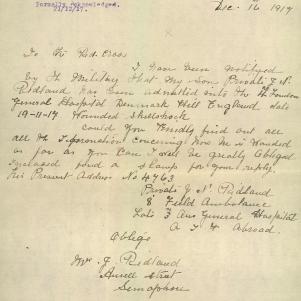 Formally Acknowledged.
21/12/17.
Dec. 16 1917
To the Red Cross
I have been notified
By the Military that my son Private J. N.
Ridland has been admitted into the 4th London
General Hospital Denmark Hill England date
19-11-17 Wounded Shellshock
Could you Kindly find out all
all the Information concerning how he is wounded
as far as you can I will be greatly obliged
Enclosed find a stamp for your reply.
His Present Address No 4763
Private J. N. Ridland
8 Field Ambulance
Late 3 Aus General Hospital
A I F Abroad.
Oblige
Mrs J. Ridland
Street
Semaphore